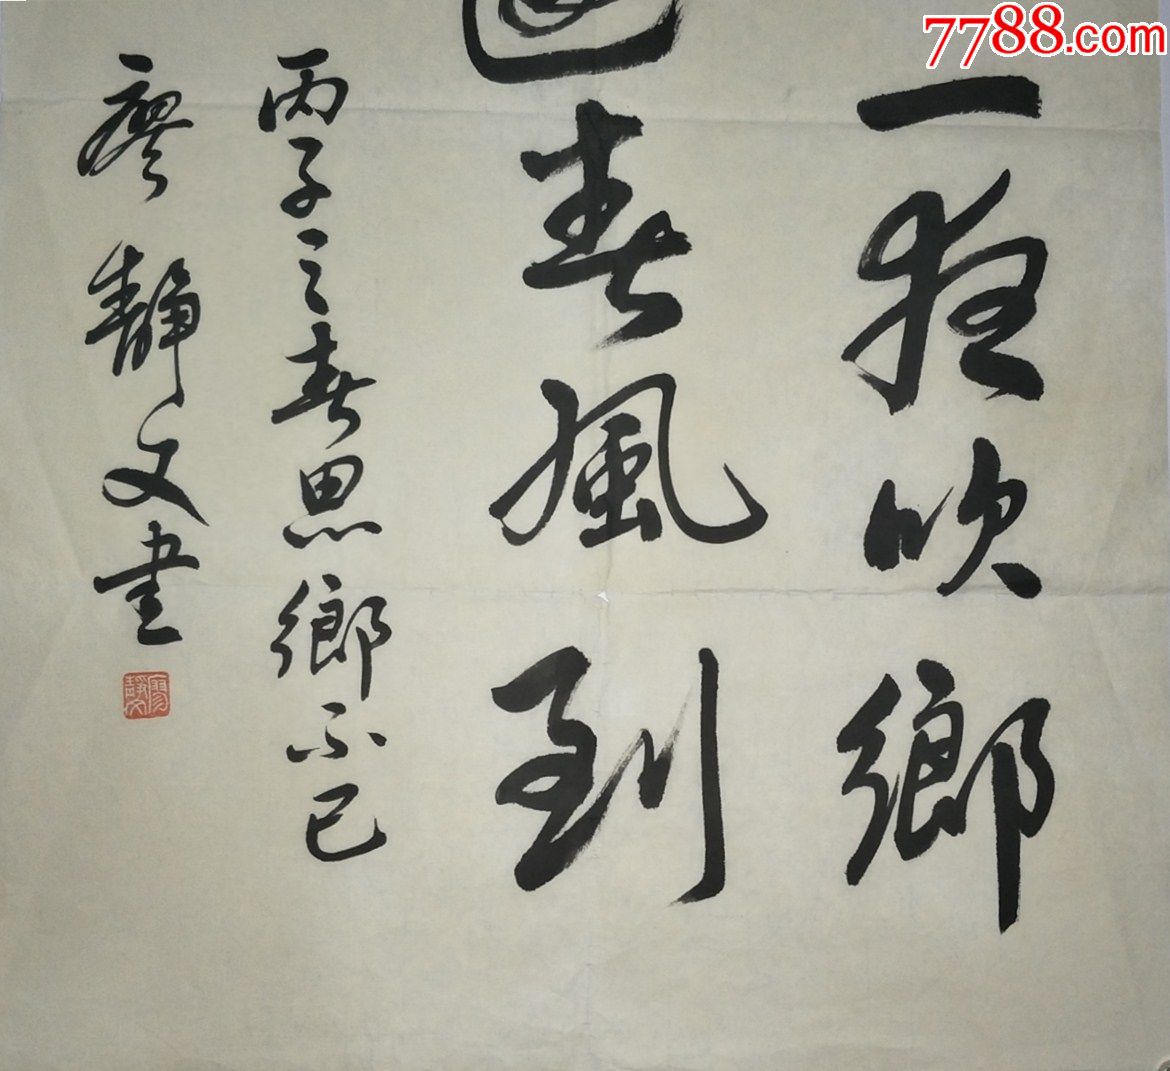 7788.com
一夜吹鄉
春風到
丙子之春思鄉不已
廖靜文書
廖靜文